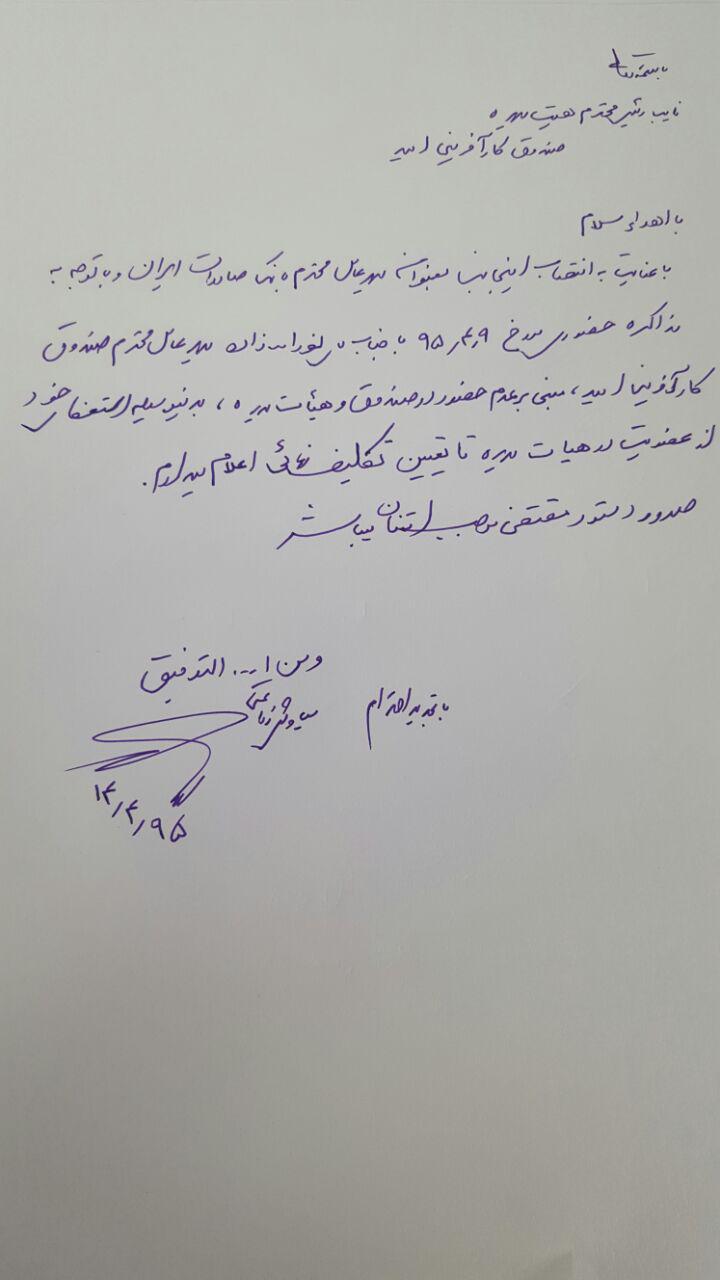 باسمه تعالی
نایب رئیس محترم هیئت مدیره
صندوق کارآفرینی امید
با اهداء سلام
با عنایت به انتصاب اینجانب بعنوان مدیرعامل محترم بانک صادرات ایران و با توجه به
مذاکره حضوری مورخ ۹۵٫۴٫۹ با جناب مدیرعامل محترم صندوق
کارآفرینی امید، مبنی بر عدم حضور در صندوق و هیئت مدیره، بدینوسیله استعفای خود
از عضویت در هیات مدیره تا تعیین تکلیف نهائی اعلام میدارم.
صدور دستور مقتضی موجب امتنان میباشد
ومن ا... التوفیق
با تجدید احترام
سیاوش زراعتی
۱۴/۴/۹۵